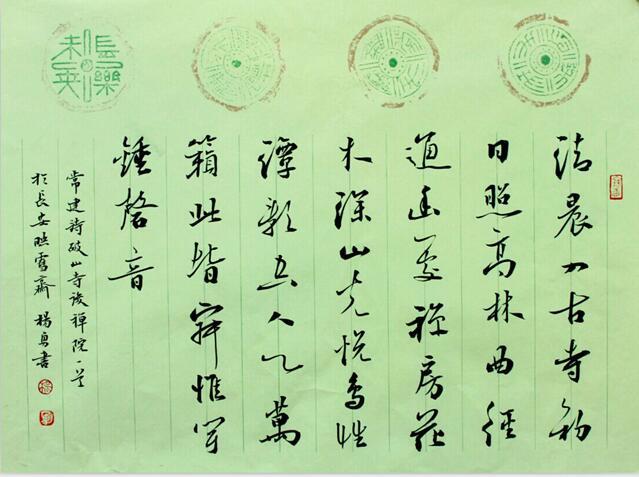 清晨入古寺初
日照高林曲徑
通幽處禪房花
木深山光悅鳥性
潭影空人心萬
籟此皆寂惟聞
鍾磬音
常建詩破山寺後禪院一首
於長安映雪齋 楊勇書
長樂未央